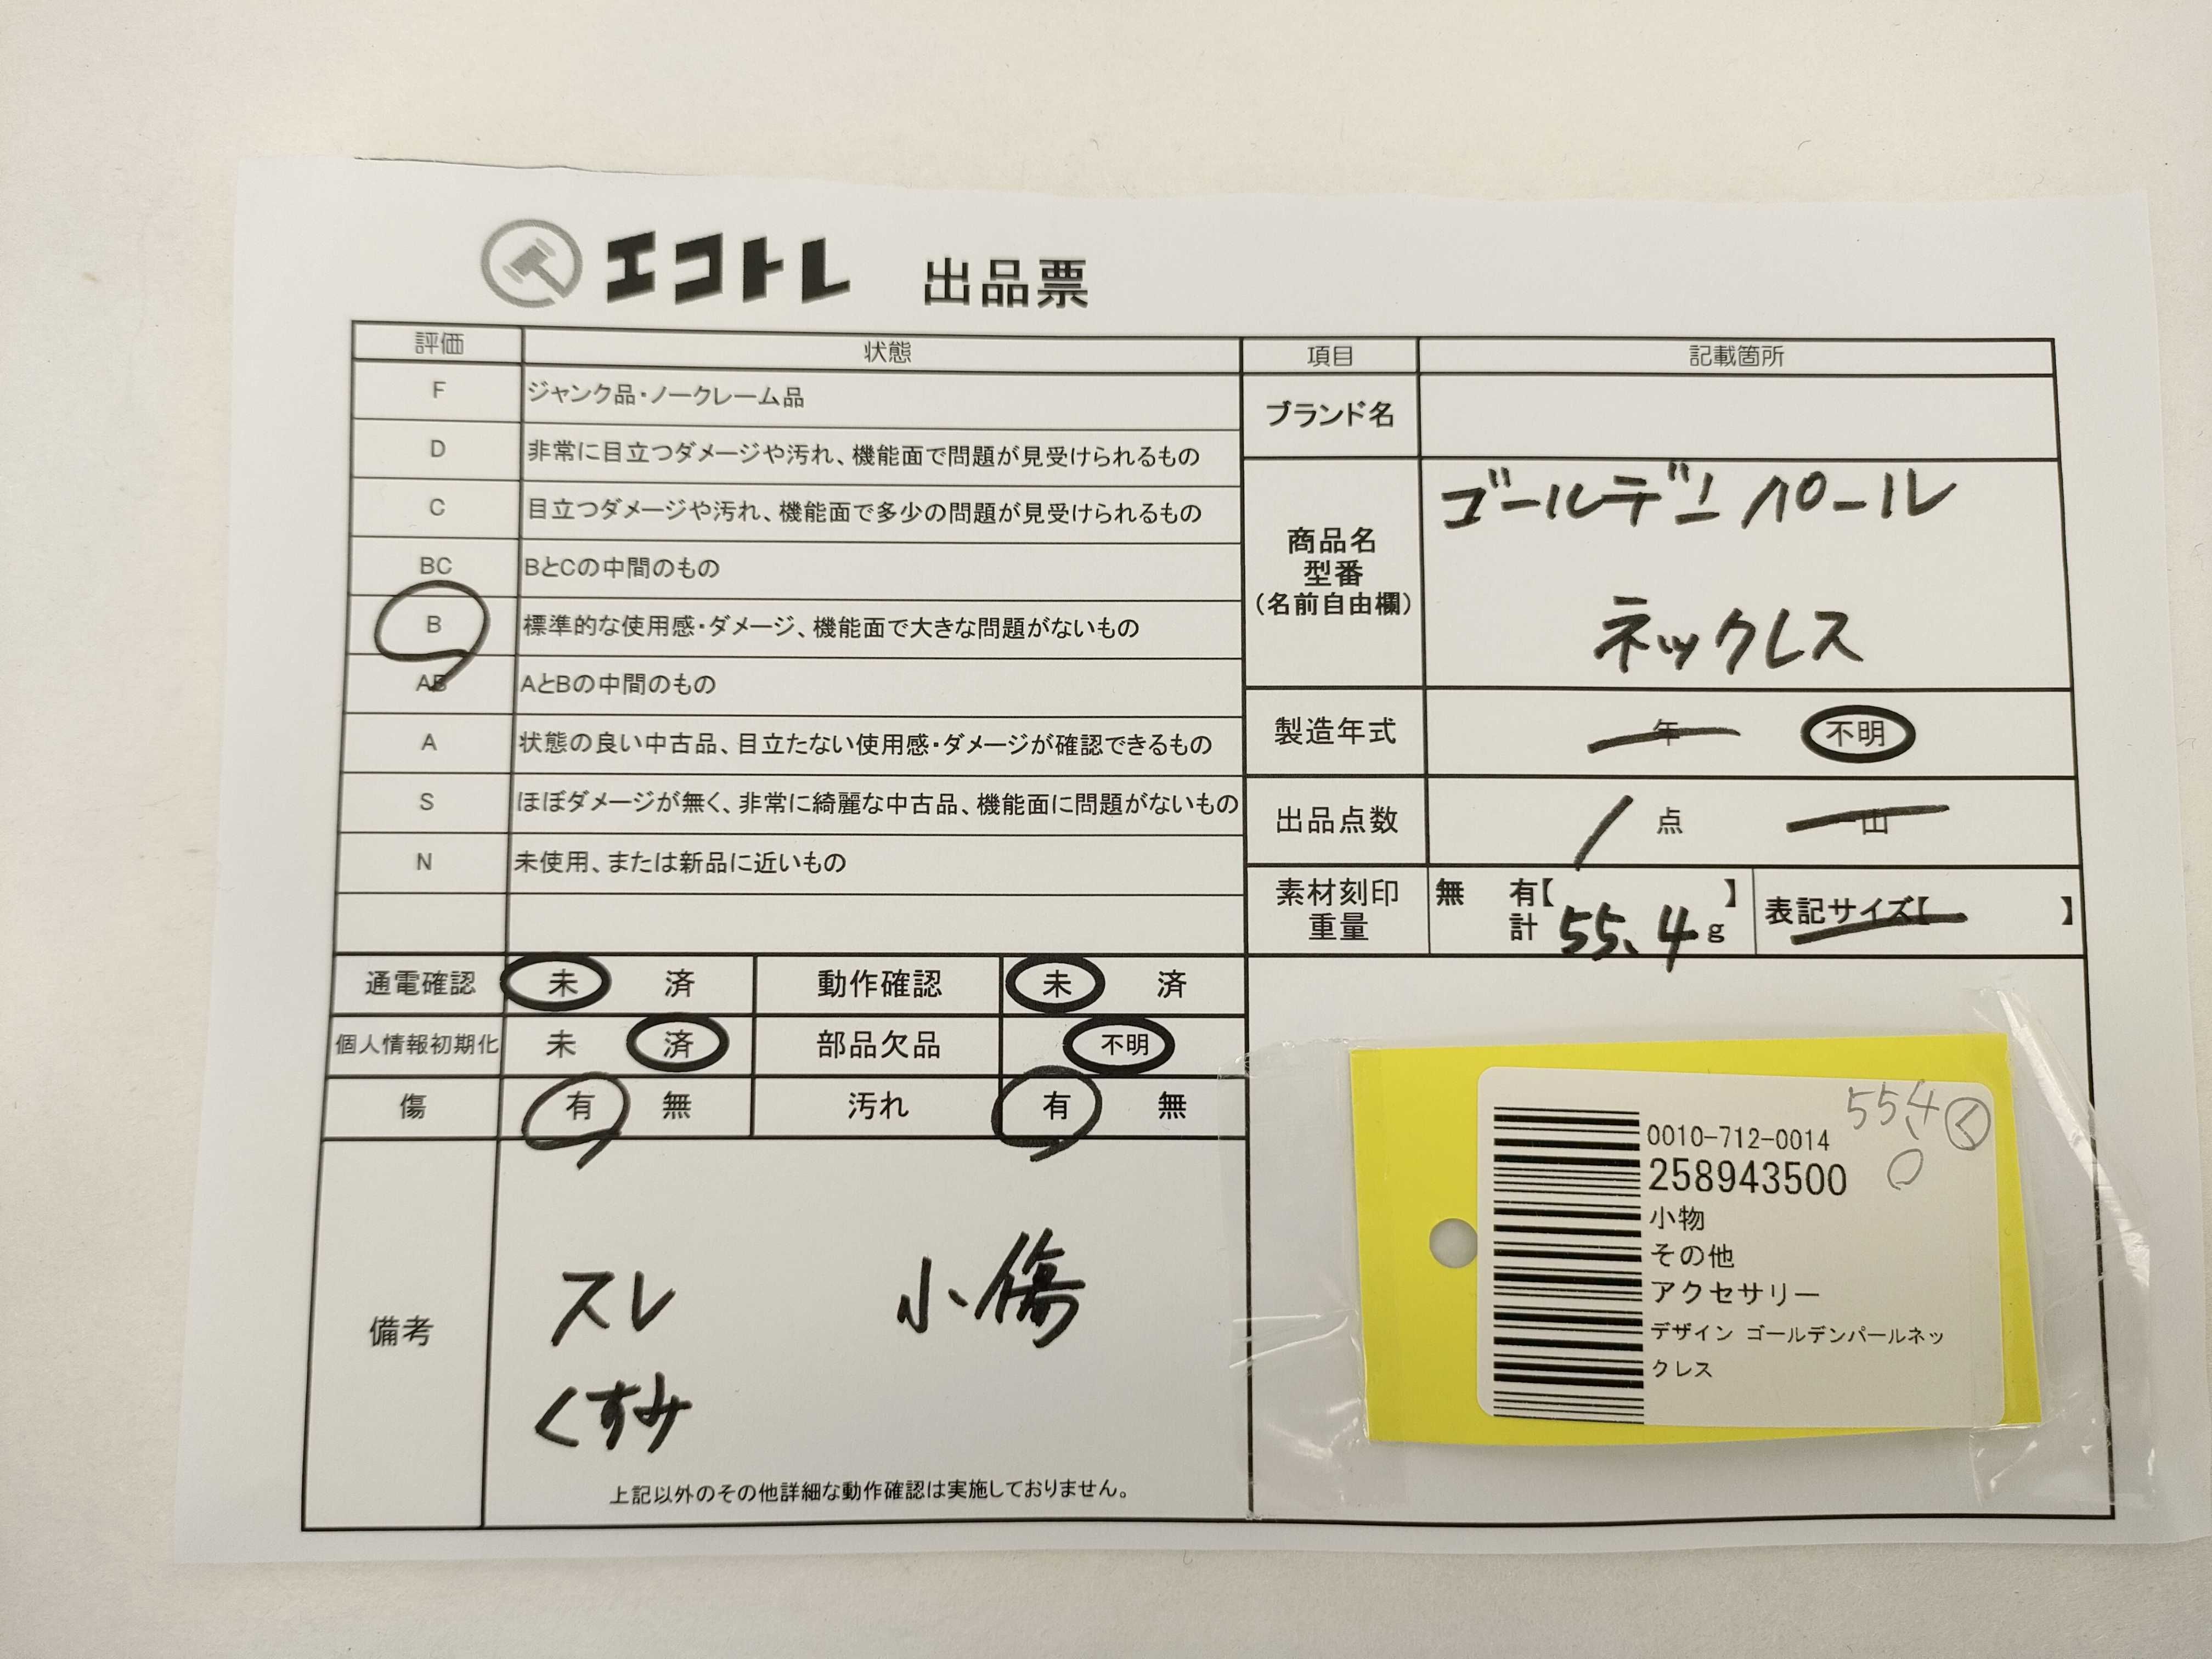 エコトレ 出品票
評価 状態
F ジャンク品・ノークレーム品
D 非常に目立つダメージや汚れ、機能面で問題が見受けられるもの
C 目立つダメージや汚れ、機能面で多少の問題が見受けられるもの
BC BとCの中間のもの
B 標準的な使用感・ダメージ、機能面で大きな問題がないもの
AB AとBの中間のもの
A 状態の良い中古品、目立たない使用感・ダメージが確認できるもの
S ほぼダメージが無く、非常に綺麗な中古品、機能面に問題がないもの
N 未使用、または新品に近いもの
項目 記載箇所
ブランド名
商品名
型番
(名前自由欄)
ゴールデンパール
ネックレス
製造年式 年 不明
出品点数 1 点 一山
素材刻印
重量
無 有【 】
計 55.4 g
表記サイズ【 】
通電確認 未 済 動作確認 未 済
個人情報初期化 未 済 部品欠品 不明
傷 有 無 汚れ 有 無
備考
スレ 小傷
くすみ
上記以外のその他詳細な動作確認は実施しておりません。
55.4 く
0010-712-0014
258943500
小物
その他
アクセサリー
デザイン ゴールデンパールネッ
クレス